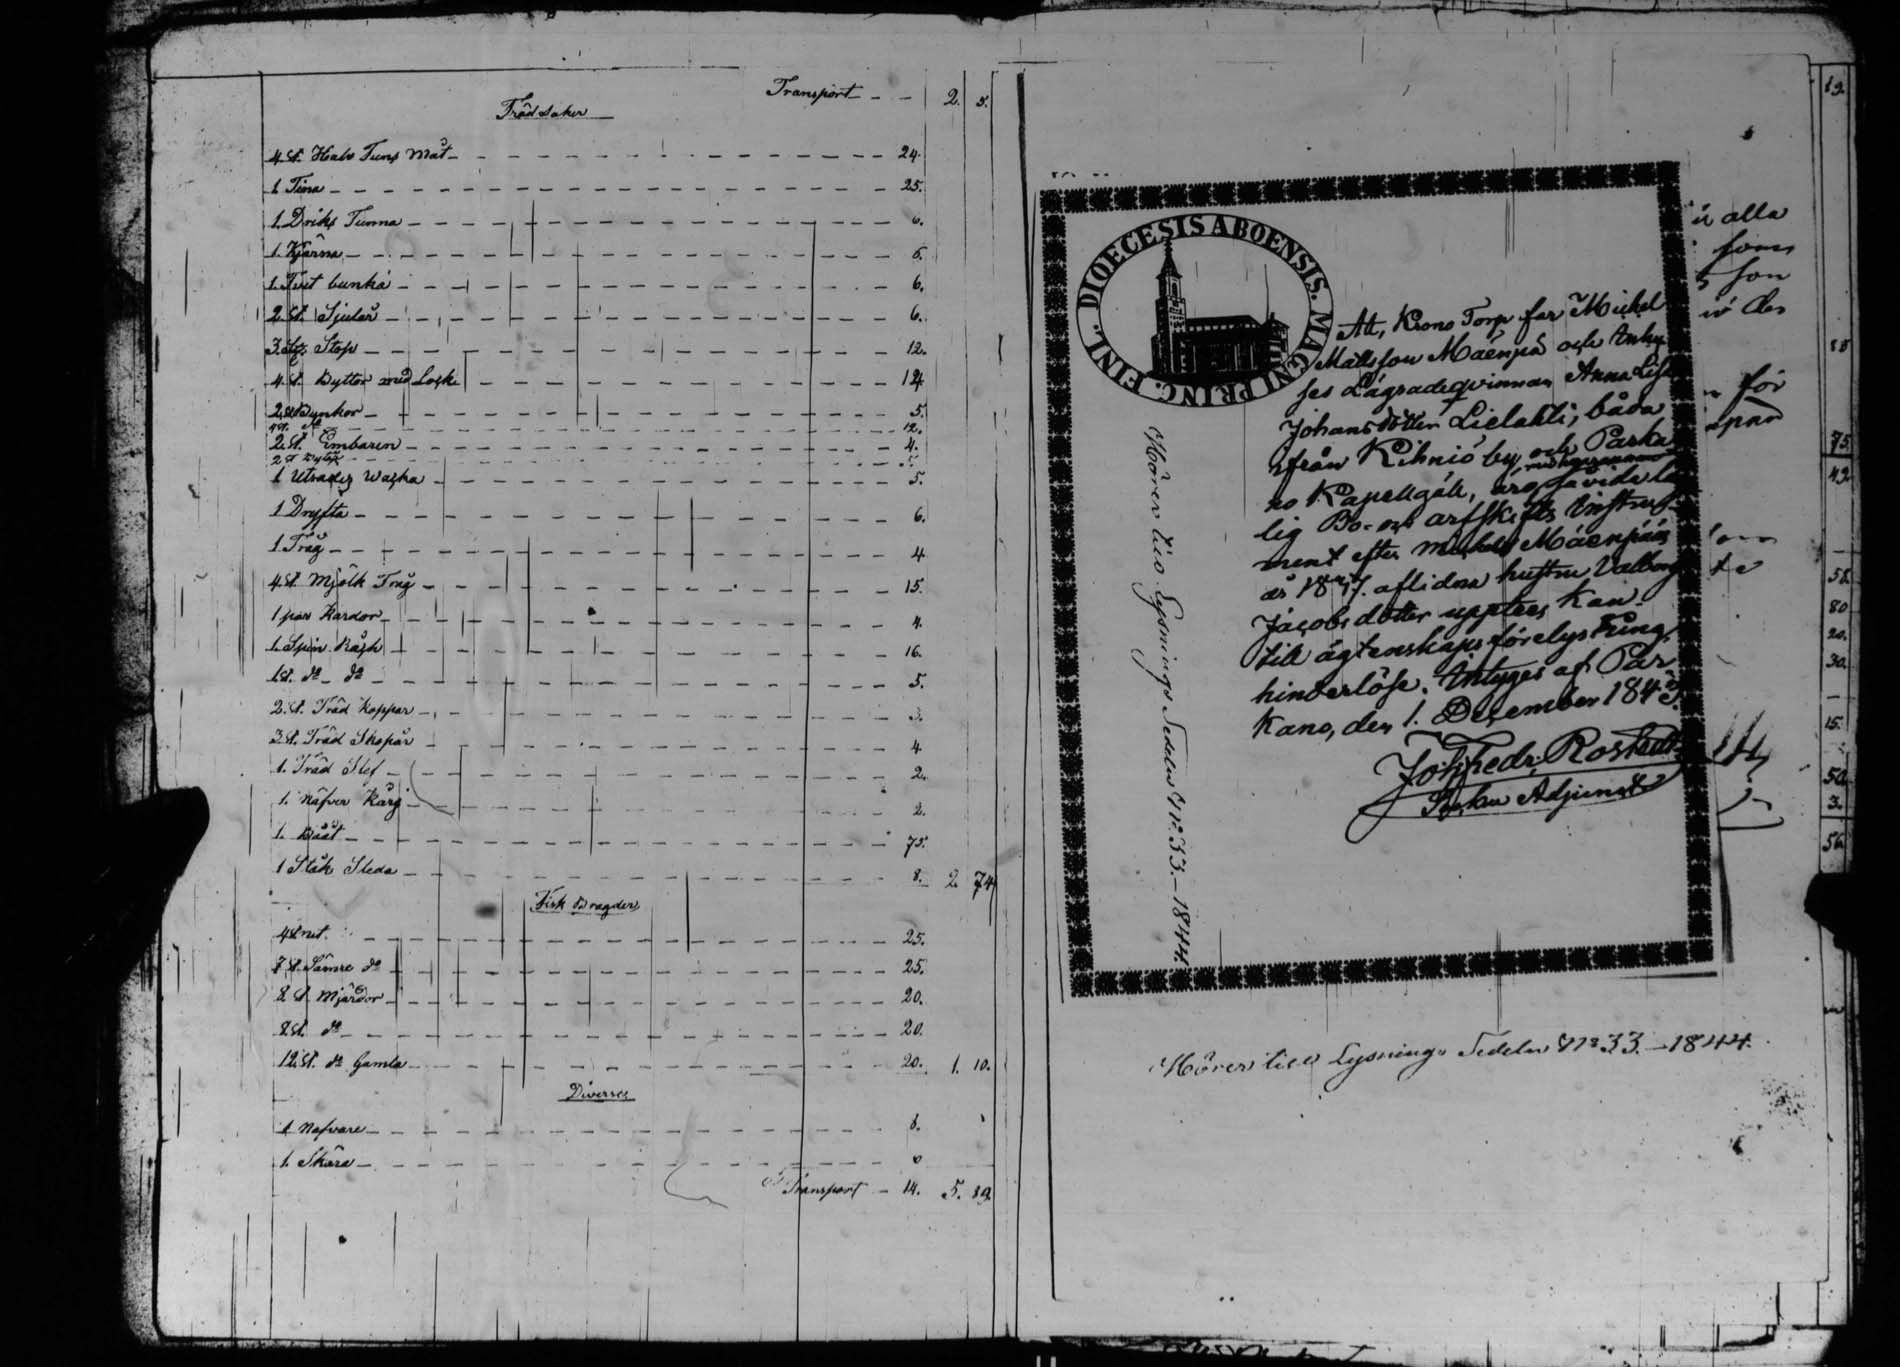 Transport - - 2. 5.
Träd saker
4. st. Halv Tuns Måt - 24.
1. Tina - 25.
1. Driks Tunna - 6.
1. Kjärna - 6.
1. Tvet bunka - 6.
2. st. Sjular - 6.
3. St. Stop - 12.
4. st. Byttor med Lock - 12
2. st Bynkor - 5.
4 st. do - 12.
2. st. Embaren - 4.
2 st
1 Utrades Waska - 5.
1 Dryfta - 6.
1. Tråg - 4
4. st. Mjölk Tråg - 15.
1 par Kardor - 4.
1. Spin Råck - 16.
1 st. do do - 5.
2. st. Träd Koppar - 3.
3. st. Träd Skopår - 4.
1. Träd Slef - 2.
1. Näfver Karg - 2.
1. Bååt - 75.
1 Ståk Sleda - 8. 2. 74
Fisk Bragder
4 st not. - 25.
7 st. Sämre do - 25.
8 st. Mjärdor - 20.
8 st. do - 20.
12. st. do Gamla - 20. 1. 10.
Diverses
1 Nafvare - 6.
1. Skära -
Transport - 14. 5. 89.
DIOECESIS ABOENSIS. MAGNI PRINC. FINL.
Att, Krono Torp far Michel
Mattsson Mäenpä och Inhy
ses Lägradeqvinnan Anna Lisa
Johans dotter Lielahti, båda
från Kihniö by och Parka
no Kapellgäll, äro, så vida la
lig Bo- och arfskiftes Instru-
ment efter Michel Mäenpääs
år 1837. aflidna hustru Valborg
Jacobs dotter upptees kan
till ägtenskaps förelystning,
hinderlöse. Intygas af Par
kano, den 1. December 1843.
Joh. Fredr. Roskedt
Socku Adjunct
Hörer till Lysnings Sedeln No 33. - 1844.
Hörer till Lysnings Sedeln No 33. - 1844.
alla
som
son
des
för
te
19.
75
49.
55.
80
20.
30.
15.
50.
3.
56.